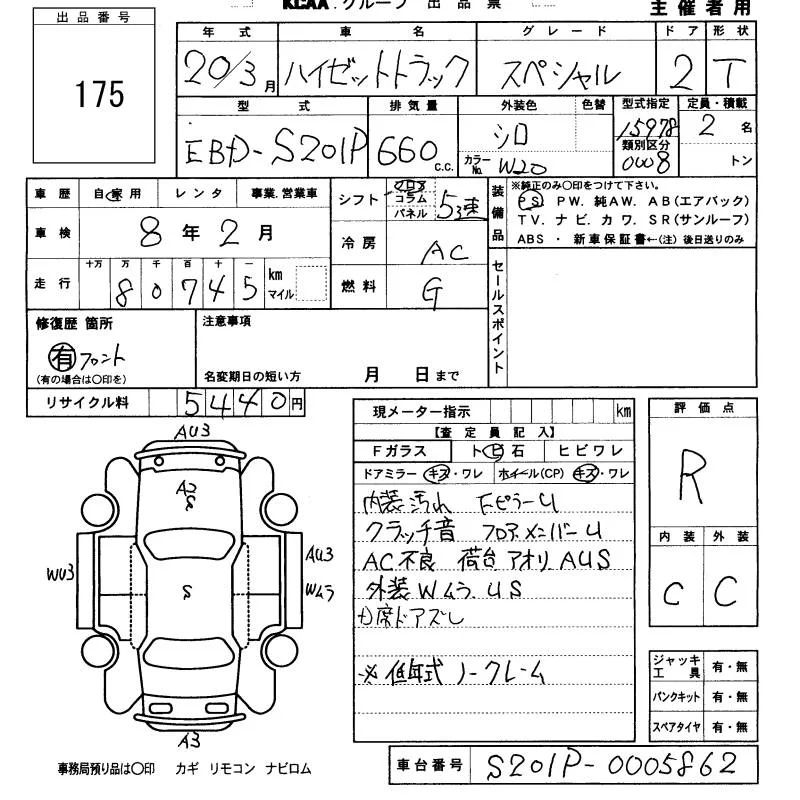 KCAA.グループ 出品票
主催者用
出品番号
175
年式 車名 グレード ドア 形状
20/3月 ハイゼットトラック スペシャル 2 T
型式 排気量 外装色 色替 型式指定 定員・積載
EBD-S201P 660 c.c. シロ 15978 2名
カラーNo. W20 類別区分 0008 トン
車歴 自家用 レンタ 事業.営業車
シフト フロア コラム パネル 5速
装備品 ※純正のみ〇印をつけて下さい。
PS PW. 純AW. AB(エアバック)
TV. ナビ. カワ. SR(サンルーフ)
ABS ・ 新車保証書←(注)後日送りのみ
車検 8年2月
冷房 AC
走行 十万 万 千 百 十 一
80745 km マイル
燃料 G
セールスポイント
修復歴 箇所
有 フロント
(有の場合は〇印を)
注意事項
名変期日の短い方 月 日まで
リサイクル料 5440円
現メーター指示 km
【査定員記入】
Fガラス トビ石 ヒビワレ
ドアミラー キズ・ワレ ホイール(CP) キズ・ワレ
内装汚れ FピラーU
クラッチ音 フロアメンバーU
AC不良 荷台アオリAUS
外装Wムラ. US
席ドアズレ
※低年式ノークレーム
評価点
R
内装 外装
C C
ジャッキ工具 有・無
パンクキット 有・無
スペアタイヤ 有・無
AU3
A2
S
WU3
S
AU3
Wムラ
A3
事務局預り品は〇印 カギ リモコン ナビロム
車台番号 S201P-0005862